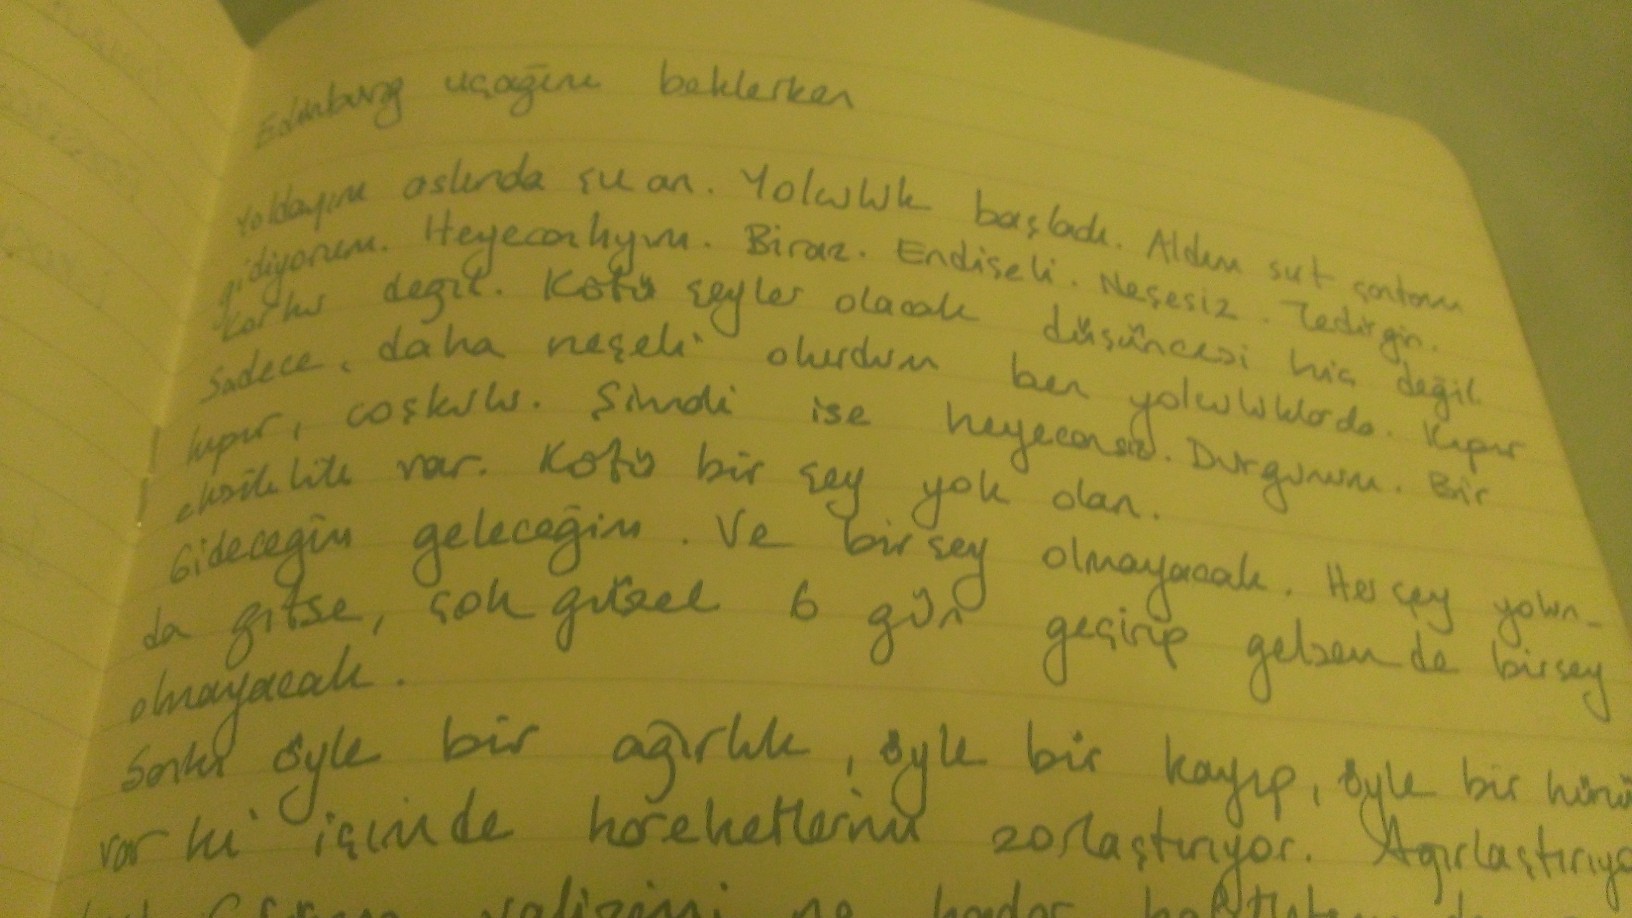 Edinburg uçağını beklerken
Yoldayım aslında şu an. Yolculuk başladı. Aldım sırt çantamı
gidiyorum. Heyecanlıyım. Biraz. Endişeli. Neşesiz. Tedirgin.
Korku değil. Kötü şeyler olacak düşüncesi hiç değil.
Sadece, daha neşeli olurdum ben yolculuklarda. Kıpır
kıpır, coşkulu. Şimdi ise heyecansız. Durgunum. Bir
eksiklik var. Kötü bir şey yok olan.
Gideceğim geleceğim. Ve birşey olmayacak. Herşey yolun-
da gitse, çok güzel 6 gün geçirip gelsem de birşey
olmayacak.
Sanki öyle bir ağırlık, öyle bir kayıp, öyle bir
var ki içimde hareketlerimi zorlaştırıyor.
valizimi ne kadar